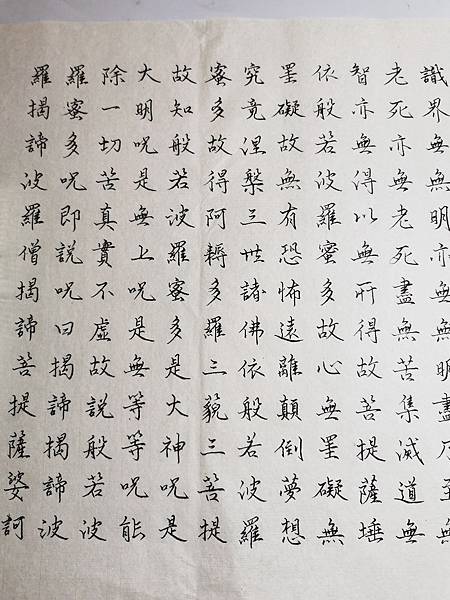 識界無無明亦無無明盡乃至無
老死亦無老死盡無苦集滅道無
智亦無得以無所得故菩提薩埵
依般若波羅蜜多故心無罣礙無
罣礙故無有恐怖遠離顛倒夢想
究竟涅槃三世諸佛依般若波羅
蜜多故得阿耨多羅三藐三菩提
故知般若波羅蜜多是大神呪是
大明呪是無上呪是無等等呪能
除一切苦真實不虛故說般若波
羅蜜多呪即說呪曰揭諦揭諦波
羅揭諦波羅僧揭諦菩提薩婆訶